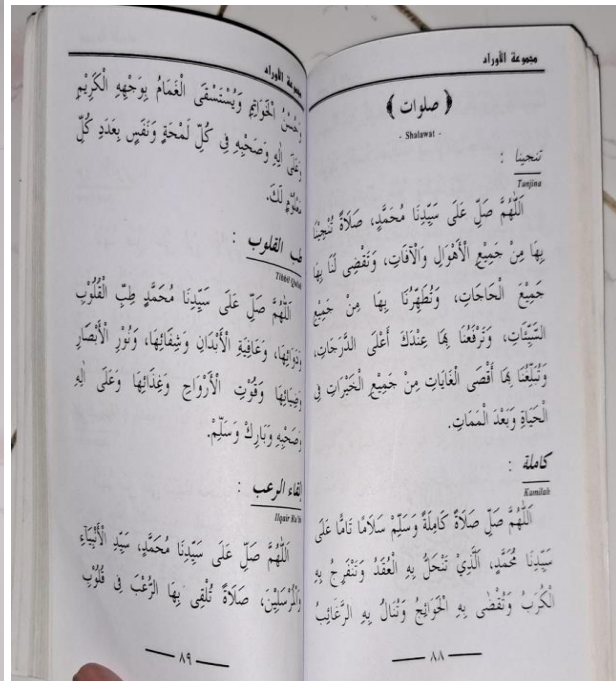 مجموعة الأوراد
﴿ صلوات ﴾
- Shalawat -
تنجينا :
Tanjina
اَللّٰهُمَّ صَلِّ عَلَى سَيِّدِنَا مُحَمَّدٍ، صَلَاةً تُنْجِيْنَا
بِهَا مِنْ جَمِيْعِ الْأَهْوَالِ وَالْآفَاتِ، وَتَقْضِى لَنَا بِهَا
جَمِيْعَ الْحَاجَاتِ، وَتُطَهِّرُنَا بِهَا مِنْ جَمِيْعِ
السَّيِّئَاتِ، وَتَرْفَعُنَا بِهَا عِنْدَكَ أَعْلَى الدَّرَجَاتِ،
وَتُبَلِّغُنَا بِهَا أَقْصَى الْغَايَاتِ مِنْ جَمِيْعِ الْخَيْرَاتِ فِى
الْحَيَاةِ وَبَعْدَ الْمَمَاتِ.
كاملة :
Kamilah
اَللّٰهُمَّ صَلِّ صَلَاةً كَامِلَةً وَسَلِّمْ سَلَامًا تَامًّا عَلَى
سَيِّدِنَا مُحَمَّدٍ، اَلَّذِيْ تَنْحَلُّ بِهِ الْعُقَدُ وَتَنْفَرِجُ بِهِ
الْكُرَبُ وَتُقْضَى بِهِ الْحَوَائِجُ وَتُنَالُ بِهِ الرَّغَائِبُ
٨٨
مجموعة الأوراد
وَحُسْنُ الْخَوَاتِمِ وَيُسْتَسْقَى الْغَمَامُ بِوَجْهِهِ الْكَرِيْمِ
وَعَلَى آلِهِ وَصَحْبِهِ فِى كُلِّ لَمْحَةٍ وَنَفَسٍ بِعَدَدِ كُلِّ
مَعْلُوْمٍ لَكَ.
طب القلوب :
Tibbil Qulub
اَللّٰهُمَّ صَلِّ عَلَى سَيِّدِنَا مُحَمَّدٍ طِبِّ الْقُلُوْبِ
وَدَوَائِهَا، وَعَافِيَةِ الْأَبْدَانِ وَشِفَائِهَا، وَنُوْرِ الْأَبْصَارِ
وَضِيَائِهَا وَقُوْتِ الْأَرْوَاحِ وَغِذَائِهَا وَعَلَى آلِهِ
وَصَحْبِهِ وَبَارِكْ وَسَلِّمْ.
إلقاء الرعب :
Ilqair Ru'b
اَللّٰهُمَّ صَلِّ عَلَى سَيِّدِنَا مُحَمَّدٍ، سَيِّدِ الْأَنْبِيَآءِ
وَالْمُرْسَلِيْنَ، صَلَاةً تُلْقِى بِهَا الرُّعْبَ فِى قُلُوْبِ
٨٩